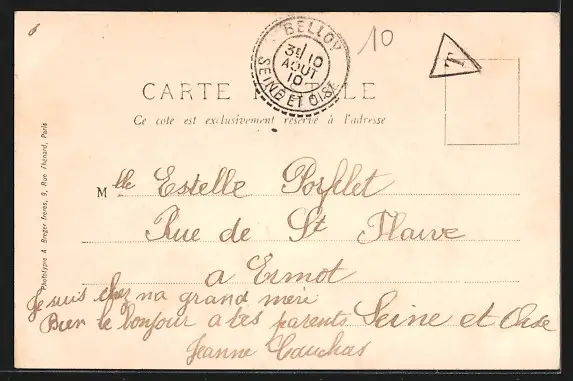 10
BELLOY
3E/10
AOUT
10
SEINE ET OISE
T
CARTE POSTALE
Ce côté est exclusivement réservé à l'adresse
Phototypie A. Breger frères, 9, Rue Thénard, Paris
Mlle Estelle
Rue de St Flaive
a Ermot
Je suis chez ma grand meri
Bien le bonjour a tes parents Seine et Oise
Jeanne Cauchas